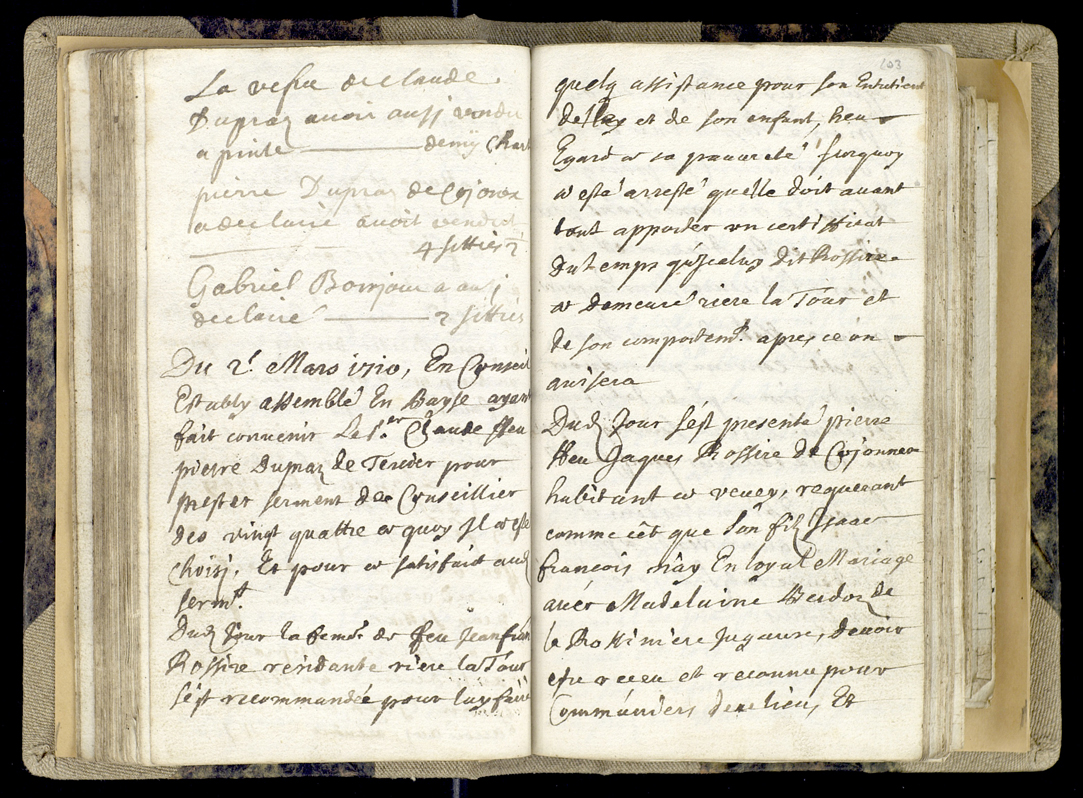 La vefve de Claude
Dupraz avoir aussj vendu
a pinte ——— demÿ Char
pierre Dupraz de Cojonex
a declairé avoit vendut
——— 4 settiers
Gabriel Bonjour a ausj
declairé ——— 2 settiers
Du 2.e Mars 1710, En Conseil
Estably assemblé En Bayse ayant
fait convenir Le S.r Claude ffeu
pierre Dupraz de Tercier pour
prester serment de Conseillier
des vingt quattre a quoy Jl a esté
Choisj, Et pour a satisfait aud
serm.t
Dud Jour la femme de feu Jean fran
Rossire residante riere la Tour
s'est recommandée pour luy faire
103
quelq assistance pour son Entretient
de et de son enfant, heu
Egard a sa pauvreté surquoy
a esté arresté quelle doit avant
tout apporter un certifficat
du temps qu'jceluy dit Rossire
a demeuré riere la Tour et
de son comportem.t apres ce on
avisera
Dud Jour s'est presenté pierre
ffeu Jaques Rossire de Cojonnex
habitant a vevey, requerant
comme cêt que son filz Isaac
francois nay En loyal Mariage
avec Madelaine Berdoz de
la Rossiniere Jugaure, devoir
estre receu et reconnu pour
Commúniers de ce lieu, Et